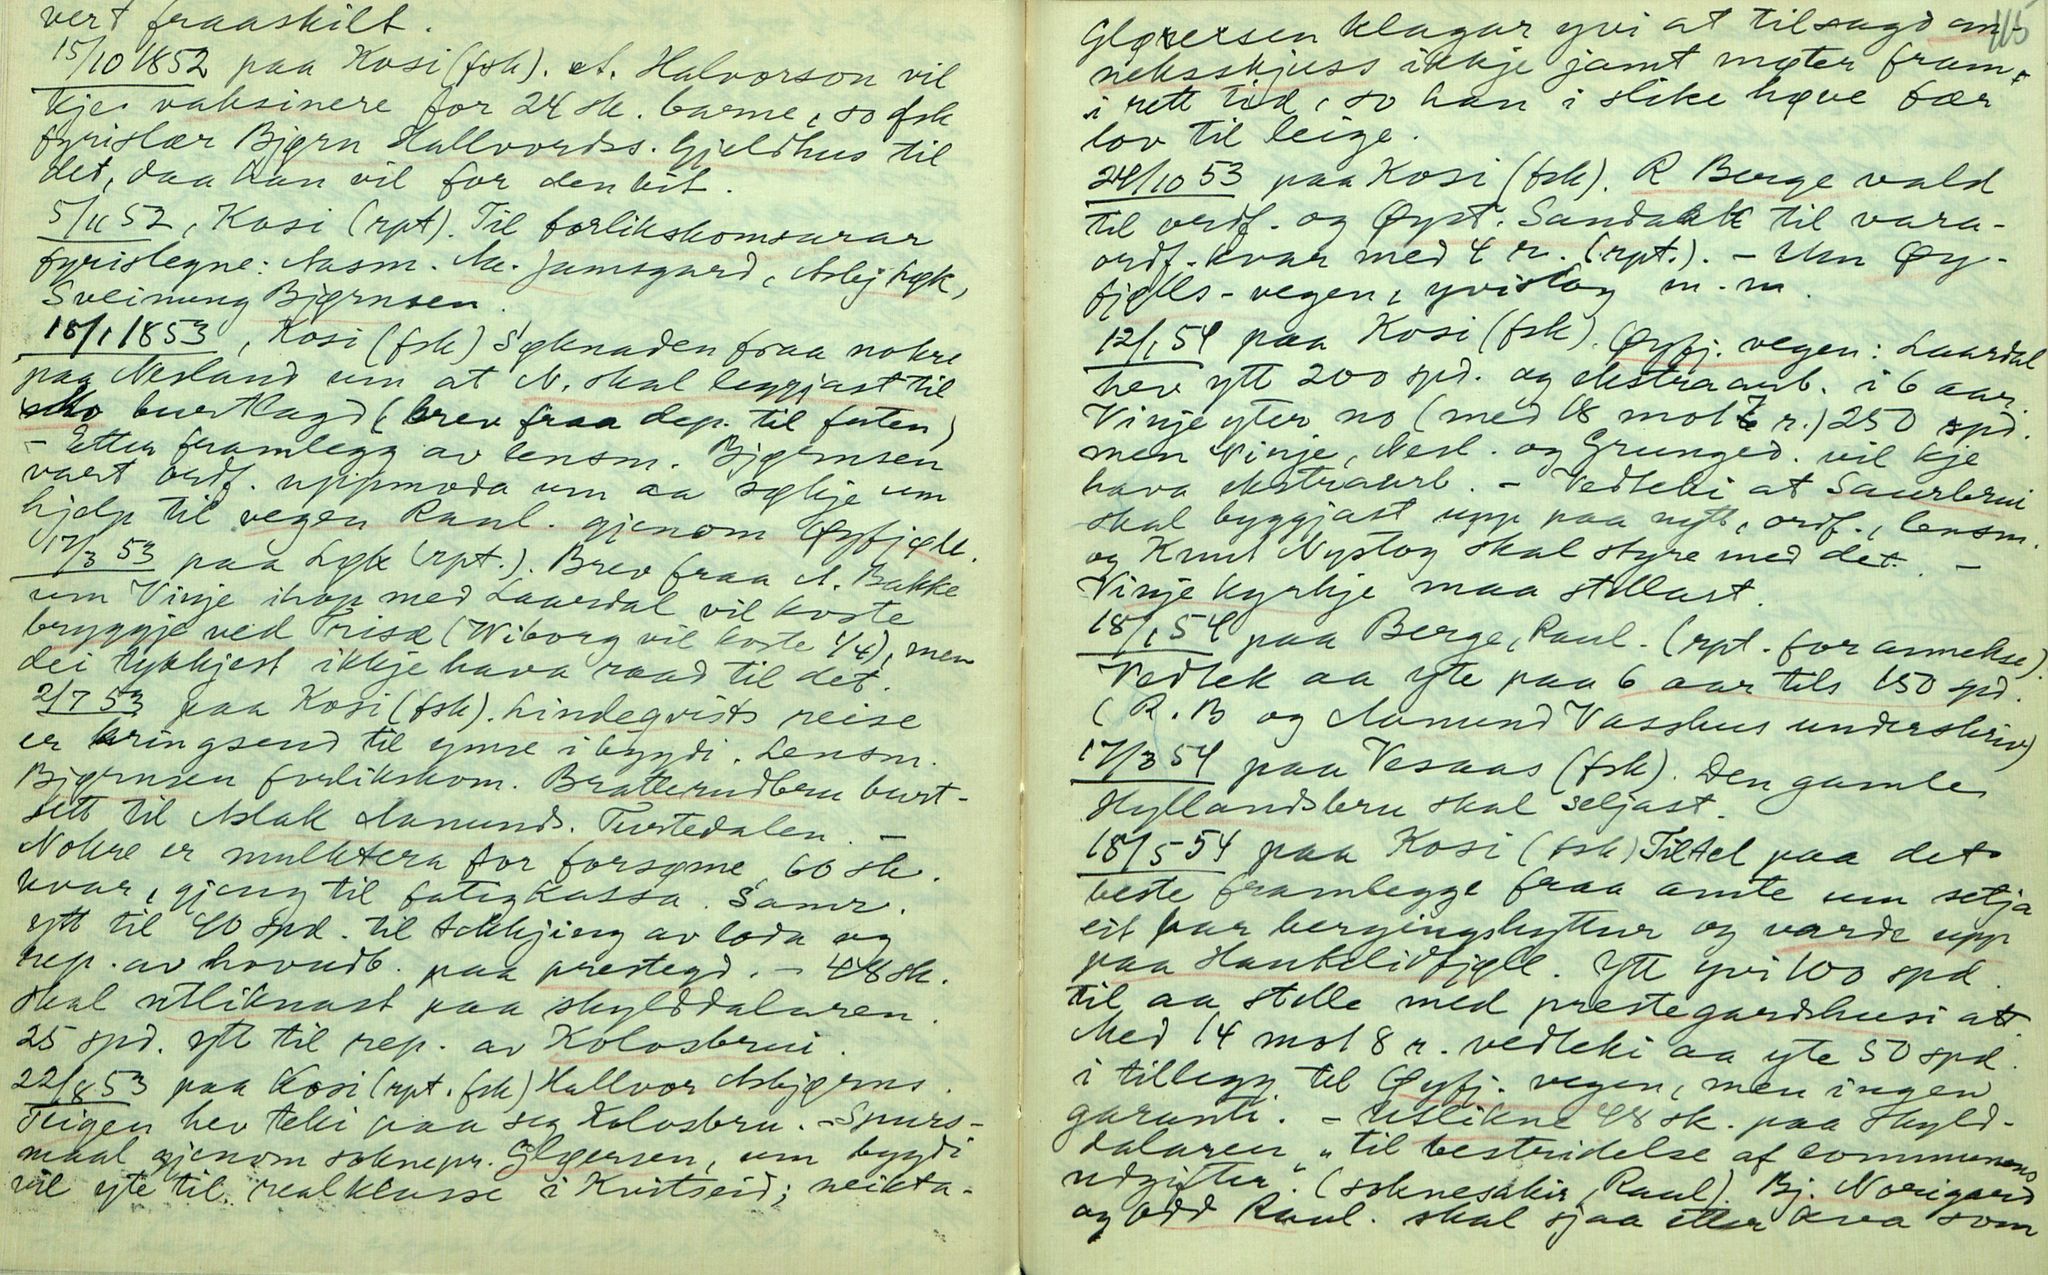 vert fraaskilt.
15/10 1852 paa Kosi (fsk). A. Halvorson vil
kje vaksinere for 24 sk. barne, so fsk
fyrislær Bjørn Hallvordss. Gjeldhus til
det, daa han vil for den bit.
5/11 52, Kosi (rpt). Til forlikskomsarar
fyrislegne: Aasm. Aa. Jamsgard, Asbj Løk,
Sveinung Bjørnsen.
18/1 1853, Kosi (fsk) Søknaden fraa nokre
paa Nesland um at N. skal leggjast til
sko burtlagd (brev fraa dep. til futen)
- Etter framlegg av lensm. Bjørnsen
vart ordf. uppmoda um aa søkje um
hjelp til vegen Raul. gjenom Øyfjøll.
17/3 53 paa Løk (rpt.). Brev fraa A. Bakke
um Vinje ihop med Laardal vil koste
bryggje ved Trisæ (Wiborg vil koste 1/4), men
dei tykkjest ikkje hava raad til det.
2/7 53 paa Kosi (fsk). Lindeqvists reise
er kringsend til ymse i bygdi. Lensm.
Bjørnsen forlikskom. Bratterudbru burt-
sett til Aslak Aamunds. Turtedalen. -
Nokre er mulktera for forsøme, 60 sk.
kvar, gjeng til fatigkassa. Samr.
ytt til 40 spd. til tekkjing av loda og
rep. av hovudb. paa prestegd. - 48 sk.
skal utliknast paa skylddalaren.
25 spd. ytt til rep. av Kolosbrui.
22/8 53 paa Kosi (rpt. fsk) Hallvor Asbjørns.
Teigen hev teki paa seg Kolosbru. - Spurs-
maal gjenom soknepr. Gløersen, um bygdi
vil yte til realklasse i Kvitseid; neikta.
115
Gløersen klagar yvi at tilsagd an-
neksskjuss ikkje jamt møter fram
i rett tid, so han i slike høve fær
lov til leige.
24/10 53 paa Kosi (fsk). R Berge vald
til ordf. og Øyst. Sandakk til vara-
ordf. kvar med 4 r. (rpt.). - Um Øy-
fjells-vegen, yvislag m.m.
12/1 54 paa Kosi (fsk). Øyfj. vegen: Laardal
hev ytt 200 spd. og ekstraarb. i 6 aar.
Vinje yter no (med 18 mot 7 r.) 250 spd.
men Vinje, Nesl. og Grunged. vil kje
hava ekstraarb. - Vedteki at Saurbrui
skal byggjast upp paa nytt, ordf., lensm.
og Knut Nystog skal styre med det. -
Vinje kyrkje maa stellast.
18/1 54 paa Berge, Raul. (rpt. for annekse).
Vedtek aa yte paa 6 aar tils 150 spd.
(R. B og Aamund Vasshus underskriv)
17/3 54 paa Vesaas (fsk). Den gamle
Hyllandsbru skal seljast.
18/5 54 paa Kosi (fsk) Tiltel paa det
beste framlegge fraa amte um setja
eit par bergingshyttur og varde upp
paa Haukelidfjøll. Ytt yvi 100 spd.
til aa stelle med prestegardshusi att.
Med 14 mot 8 r. vedteki aa yte 50 spd.
i tillegg til Øyfj. vegen, men ingen
garanti. - Utlikne 48 sk. paa skyld-
dalaren „til bestridelse af communens
udgifter". (soknesakir, Raul). Bj. Norigard
og Odd Raul. skal sjaa etter ava som